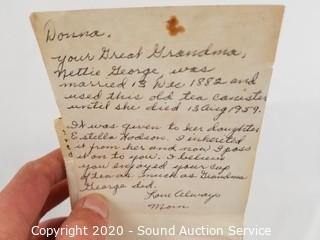 Donna,
your Great Grandma,
Nettie George, was
married 13 Dec 1882 and
used this old tea canister
until she died 13 Aug 1959.
It was given to her daughter
Estella Hodson. I inherited
it from her and now I pass
it on to you. I believe
you enjoyed your cup
of tea as much as Grandma
George did.
Love Always
Mom
Copyright 2020 - Sound Auction Service